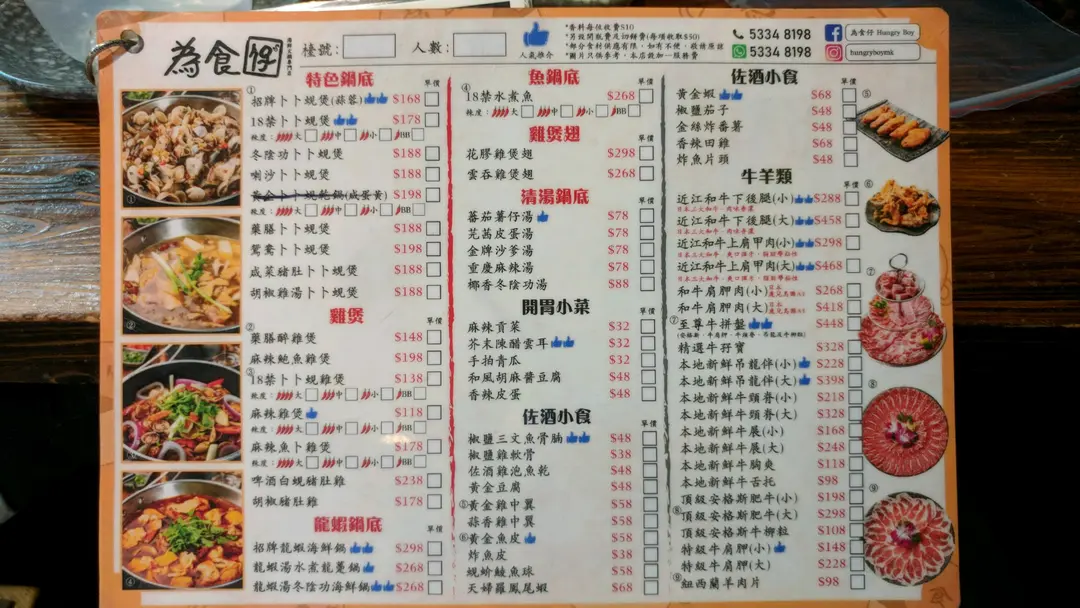 為食仔
檯號：
人數：
人氣推介
*香料每位收費$10
*另設開瓶費及切餅費(每項收取$50)
*部分食材供應有限，如有不便，敬請原諒
*圖片只供參考，本店設加一服務費
5334 8198
5334 8198
為食仔 Hungry Boy
hungryboymk
特色鍋底 單價
①
招牌卜卜蜆煲(蒜蓉) $168
18禁卜卜蜆煲 $178
辣度： 大 中 小 BB
冬陰功卜卜蜆煲 $188
喇沙卜卜蜆煲 $188
黃金卜卜蜆乾鍋(咸蛋黃) $198
辣度： 大 中 小 BB
藥膳卜卜蜆煲 $188
鴛鴦卜卜蜆煲 $198
咸菜豬肚卜卜蜆煲 $188
胡椒雞湯卜卜蜆煲 $188
雞煲 單價
②
藥膳醉雞煲 $148
麻辣鮑魚雞煲 $198
③
18禁卜卜蜆雞煲 $138
辣度： 大 中 小 BB
麻辣雞煲 $118
辣度： 大 中 小 BB
麻辣魚卜雞煲 $178
辣度： 大 中 小 BB
啤酒白蜆豬肚雞 $238
胡椒豬肚雞 $178
龍蝦鍋底 單價
招牌龍蝦海鮮鍋 $298
龍蝦湯水煮龍躉鍋 $268
龍蝦湯冬陰功海鮮鍋 $268
魚鍋底 單價
④
18禁水煮魚 $268
辣度： 大 中 小 BB
雞煲翅 單價
花膠雞煲翅 $298
雲吞雞煲翅 $268
清湯鍋底 單價
蕃茄薯仔湯 $78
芫茜皮蛋湯 $78
金牌沙爹湯 $78
重慶麻辣湯 $78
椰香冬陰功湯 $88
開胃小菜 單價
麻辣貢菜 $32
芥末陳醋雲耳 $32
手拍青瓜 $32
和風胡麻醬豆腐 $48
香辣皮蛋 $48
佐酒小食 單價
椒鹽三文魚骨腩 $48
椒鹽雞軟骨 $38
佐酒雞泡魚乾 $48
黃金豆腐 $48
⑤黃金雞中翼 $58
蒜香雞中翼 $58
⑥黃金魚皮 $58
炸魚皮 $38
蜆蚧鯪魚球 $58
天婦羅鳳尾蝦 $68
佐酒小食 單價
黃金蝦 $68
椒鹽茄子 $48
金絲炸番薯 $48
香辣田雞 $68
炸魚片頭 $48
牛羊類 單價
近江和牛下後腿(小) $288
日本三大和牛，肉味香濃
近江和牛下後腿(大) $458
日本三大和牛，肉味香濃
近江和牛上肩甲肉(小) $298
近江和牛上肩甲肉(大) $468
和牛肩胛肉(小) $268
和牛肩胛肉(大) $418
⑦至尊牛拼盤 $448
精選牛孖寶 $328
本地新鮮吊龍伴(小) $228
本地新鮮吊龍伴(大) $398
本地新鮮牛頸脊(小) $218
本地新鮮牛頸脊(大) $328
本地新鮮牛展(小) $168
本地新鮮牛展(大) $248
本地新鮮牛胸爽 $118
本地新鮮牛舌托 $98
頂級安格斯肥牛(小) $198
⑧頂級安格斯肥牛(大) $298
頂級安格斯牛柳粒 $108
特級牛肩胛(小) $148
特級牛肩胛(大) $228
⑨紐西蘭羊肉片 $98
⑤
⑥
⑦
⑧
⑨
①
②
④